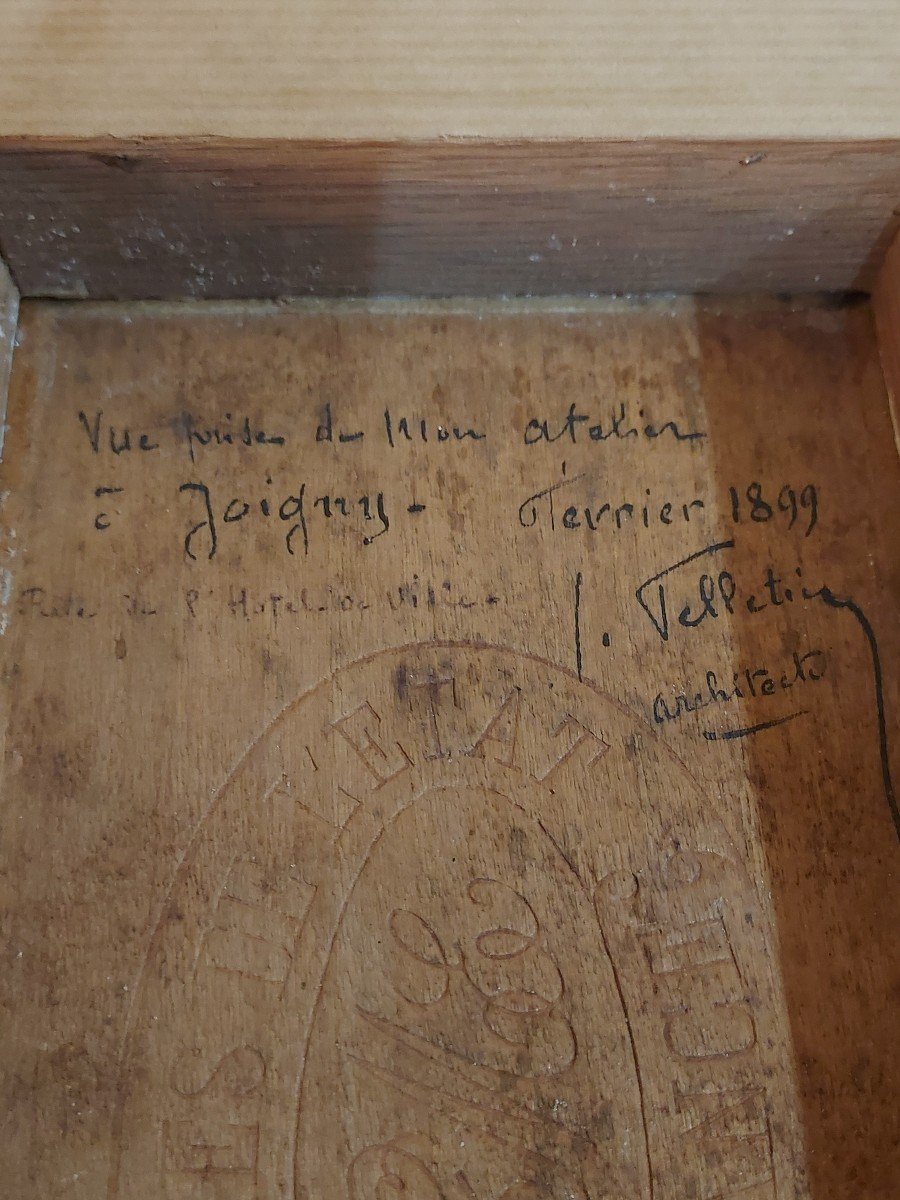 Vue prise de Mon atelier
à Joigny - Fevrier 1899
Rue de l'Hotel de Ville.
J. Pelletier
architecte
ES DE L'ETAT